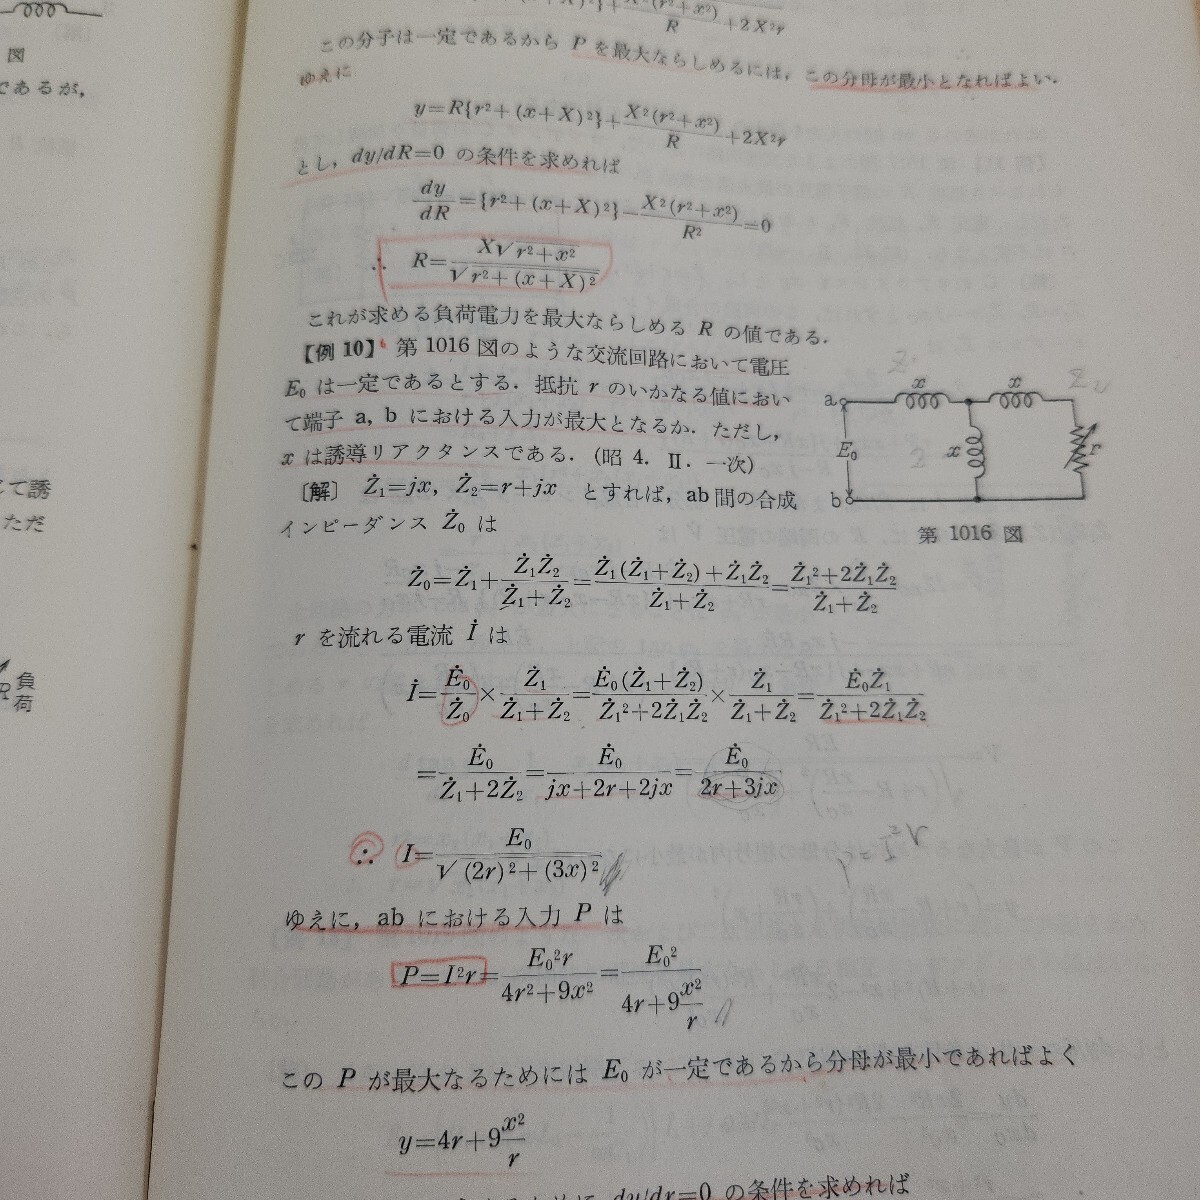 図
であるが,
この分子は一定であるから P を最大ならしめるには, この分母が最小となればよい.
ゆえに
y=R{r²+(x+X)²}+X²(r²+x²)/R+2X²r
とし, dy/dR=0 の条件を求めれば
dy/dR={r²+(x+X)²}−X²(r²+x²)/R²=0
∴ R=X√r²+x²/√r²+(x+X)²
これが求める負荷電力を最大ならしめる R の値である.
【例 10】 第 1016 図のような交流回路において電圧
E₀ は一定であるとする. 抵抗 r のいかなる値におい
て端子 a, b における入力が最大となるか. ただし,
x は誘導リアクタンスである. (昭 4. Ⅱ. 一次)
〔解〕 Ż₁=jx, Ż₂=r+jx とすれば, ab間の合成
インピーダンス Ż₀ は
a x x
E₀ x r
b
第 1016 図
Ż₀=Ż₁+Ż₁Ż₂/Ż₁+Ż₂=Ż₁(Ż₁+Ż₂)+Ż₁Ż₂/Ż₁+Ż₂=Ż₁²+2Ż₁Ż₂/Ż₁+Ż₂
r を流れる電流 İ は
İ=Ė₀/Ż₀×Ż₁/Ż₁+Ż₂=Ė₀(Ż₁+Ż₂)/Ż₁²+2Ż₁Ż₂×Ż₁/Ż₁+Ż₂=Ė₀Ż₁/Ż₁²+2Ż₁Ż₂
=Ė₀/Ż₁+2Ż₂=Ė₀/jx+2r+2jx=Ė₀/2r+3jx
∴ I=E₀/√(2r)²+(3x)²
ゆえに, ab における入力 P は
P=I²r=E₀²r/4r²+9x²=E₀²/4r+9x²/r
この P が最大なるためには E₀ が一定であるから分母が最小であればよく
y=4r+9x²/r
dy/dr=0 の条件を求めれば
て誘
ただ
R 負荷